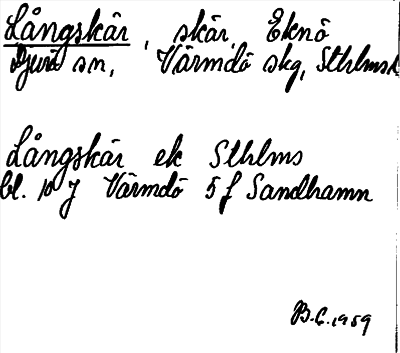 Långskär, skär, Eknö
Djurö sn, Värmdö skg, Sthlms
Långskär ek Sthlms
bl. 10 J Värmdö 5 f Sandhamn
B.C. 1959